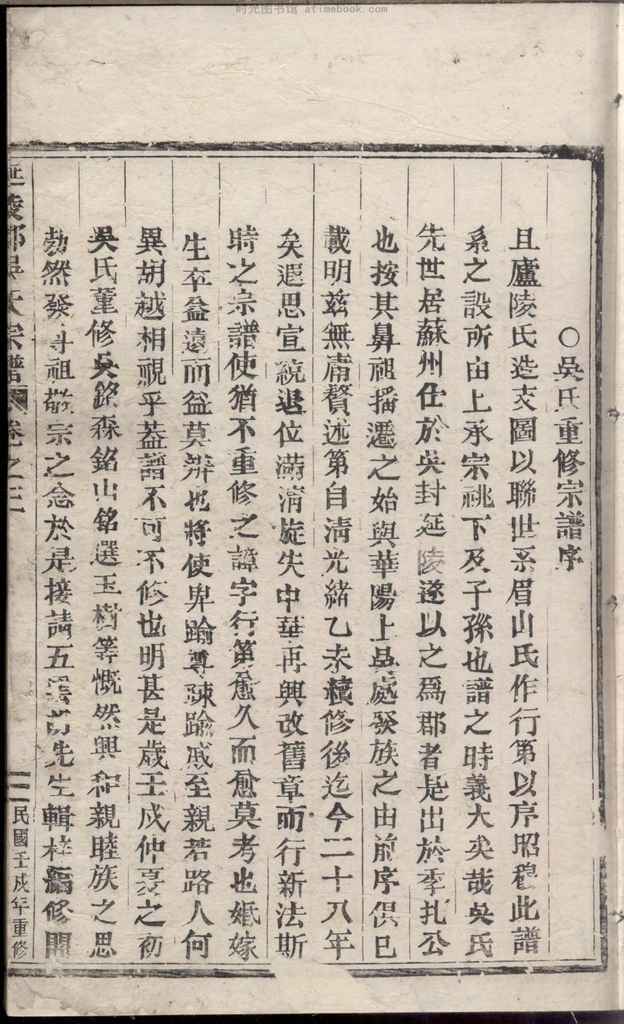 时光图书馆 atimebook.com
○吳氏重修宗譜序
且廬陵氏造支圖以聯世系眉山氏作行第以序昭穆此譜
系之設所由上承宗祧下及子孫也譜之時義大矣哉吳氏
先世居蘇州仕於吳封延陵遂以之爲郡者是出於季扎公
也按其鼻祖播遷之始與華陽上吳處發族之由前序俱已
載明茲無庸贅述第自淸光緒乙未續修後迄今二十八年
矣遐思宣統退位滿淸旋失中華再興改舊章而行新法斯
時之宗譜使猶不重修之諱字行第愈久而愈莫考也婚嫁
生卒益遠而益莫辨也將使卑踰尊踈踰戚至親若路人何
異胡越相視乎葢譜不可不修也明甚是歲壬戌仲夏之初
吳氏董修吳銘森銘山銘選玉樹等慨然興和親睦族之思
勃然發尊祖敬宗之念於是接請五雲 先生輯 修開
延陵郡吳氏宗譜 卷之三
民國壬戌年重修